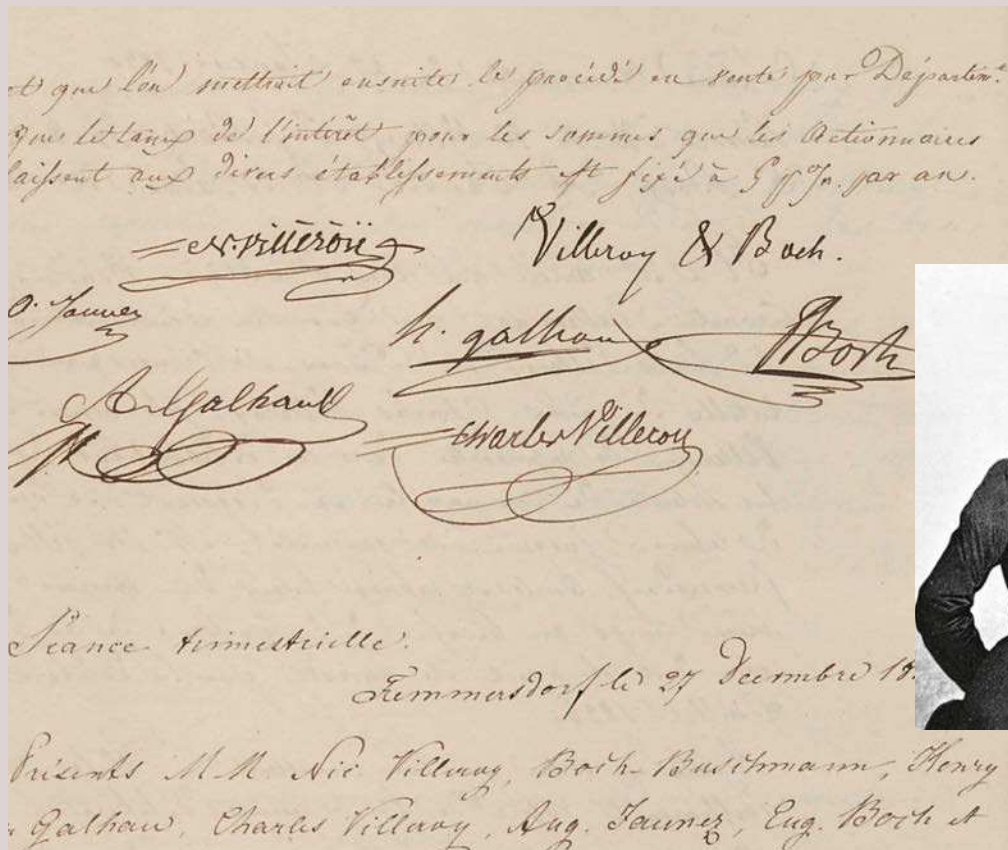 et que l'on mettrait ensuite le procédé en vente par Départem.t
que le taux de l'intérêt pour les sommes que les Actionnaires
laissent aux divers établissements est fixé à 5 p % par an.
N. Villeroy Villeroy & Boch.
Jaunez h. galhau Boch
A. Galhau Charles Villeroy
Séance trimestrielle.
Fremmersdorf le 27 Decembre 18
Présents MM Nic Villeroy, Boch-Buschmann, Henry
Galhau, Charles Villeroy, Aug. Jaunez, Eug. Boch et